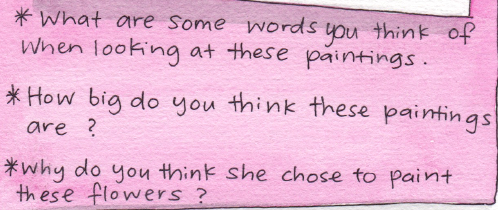 * What are some words you think of
When looking at these paintings.
* How big do you think these paintings
are ?
* Why do you think she chose to paint
these flowers ?